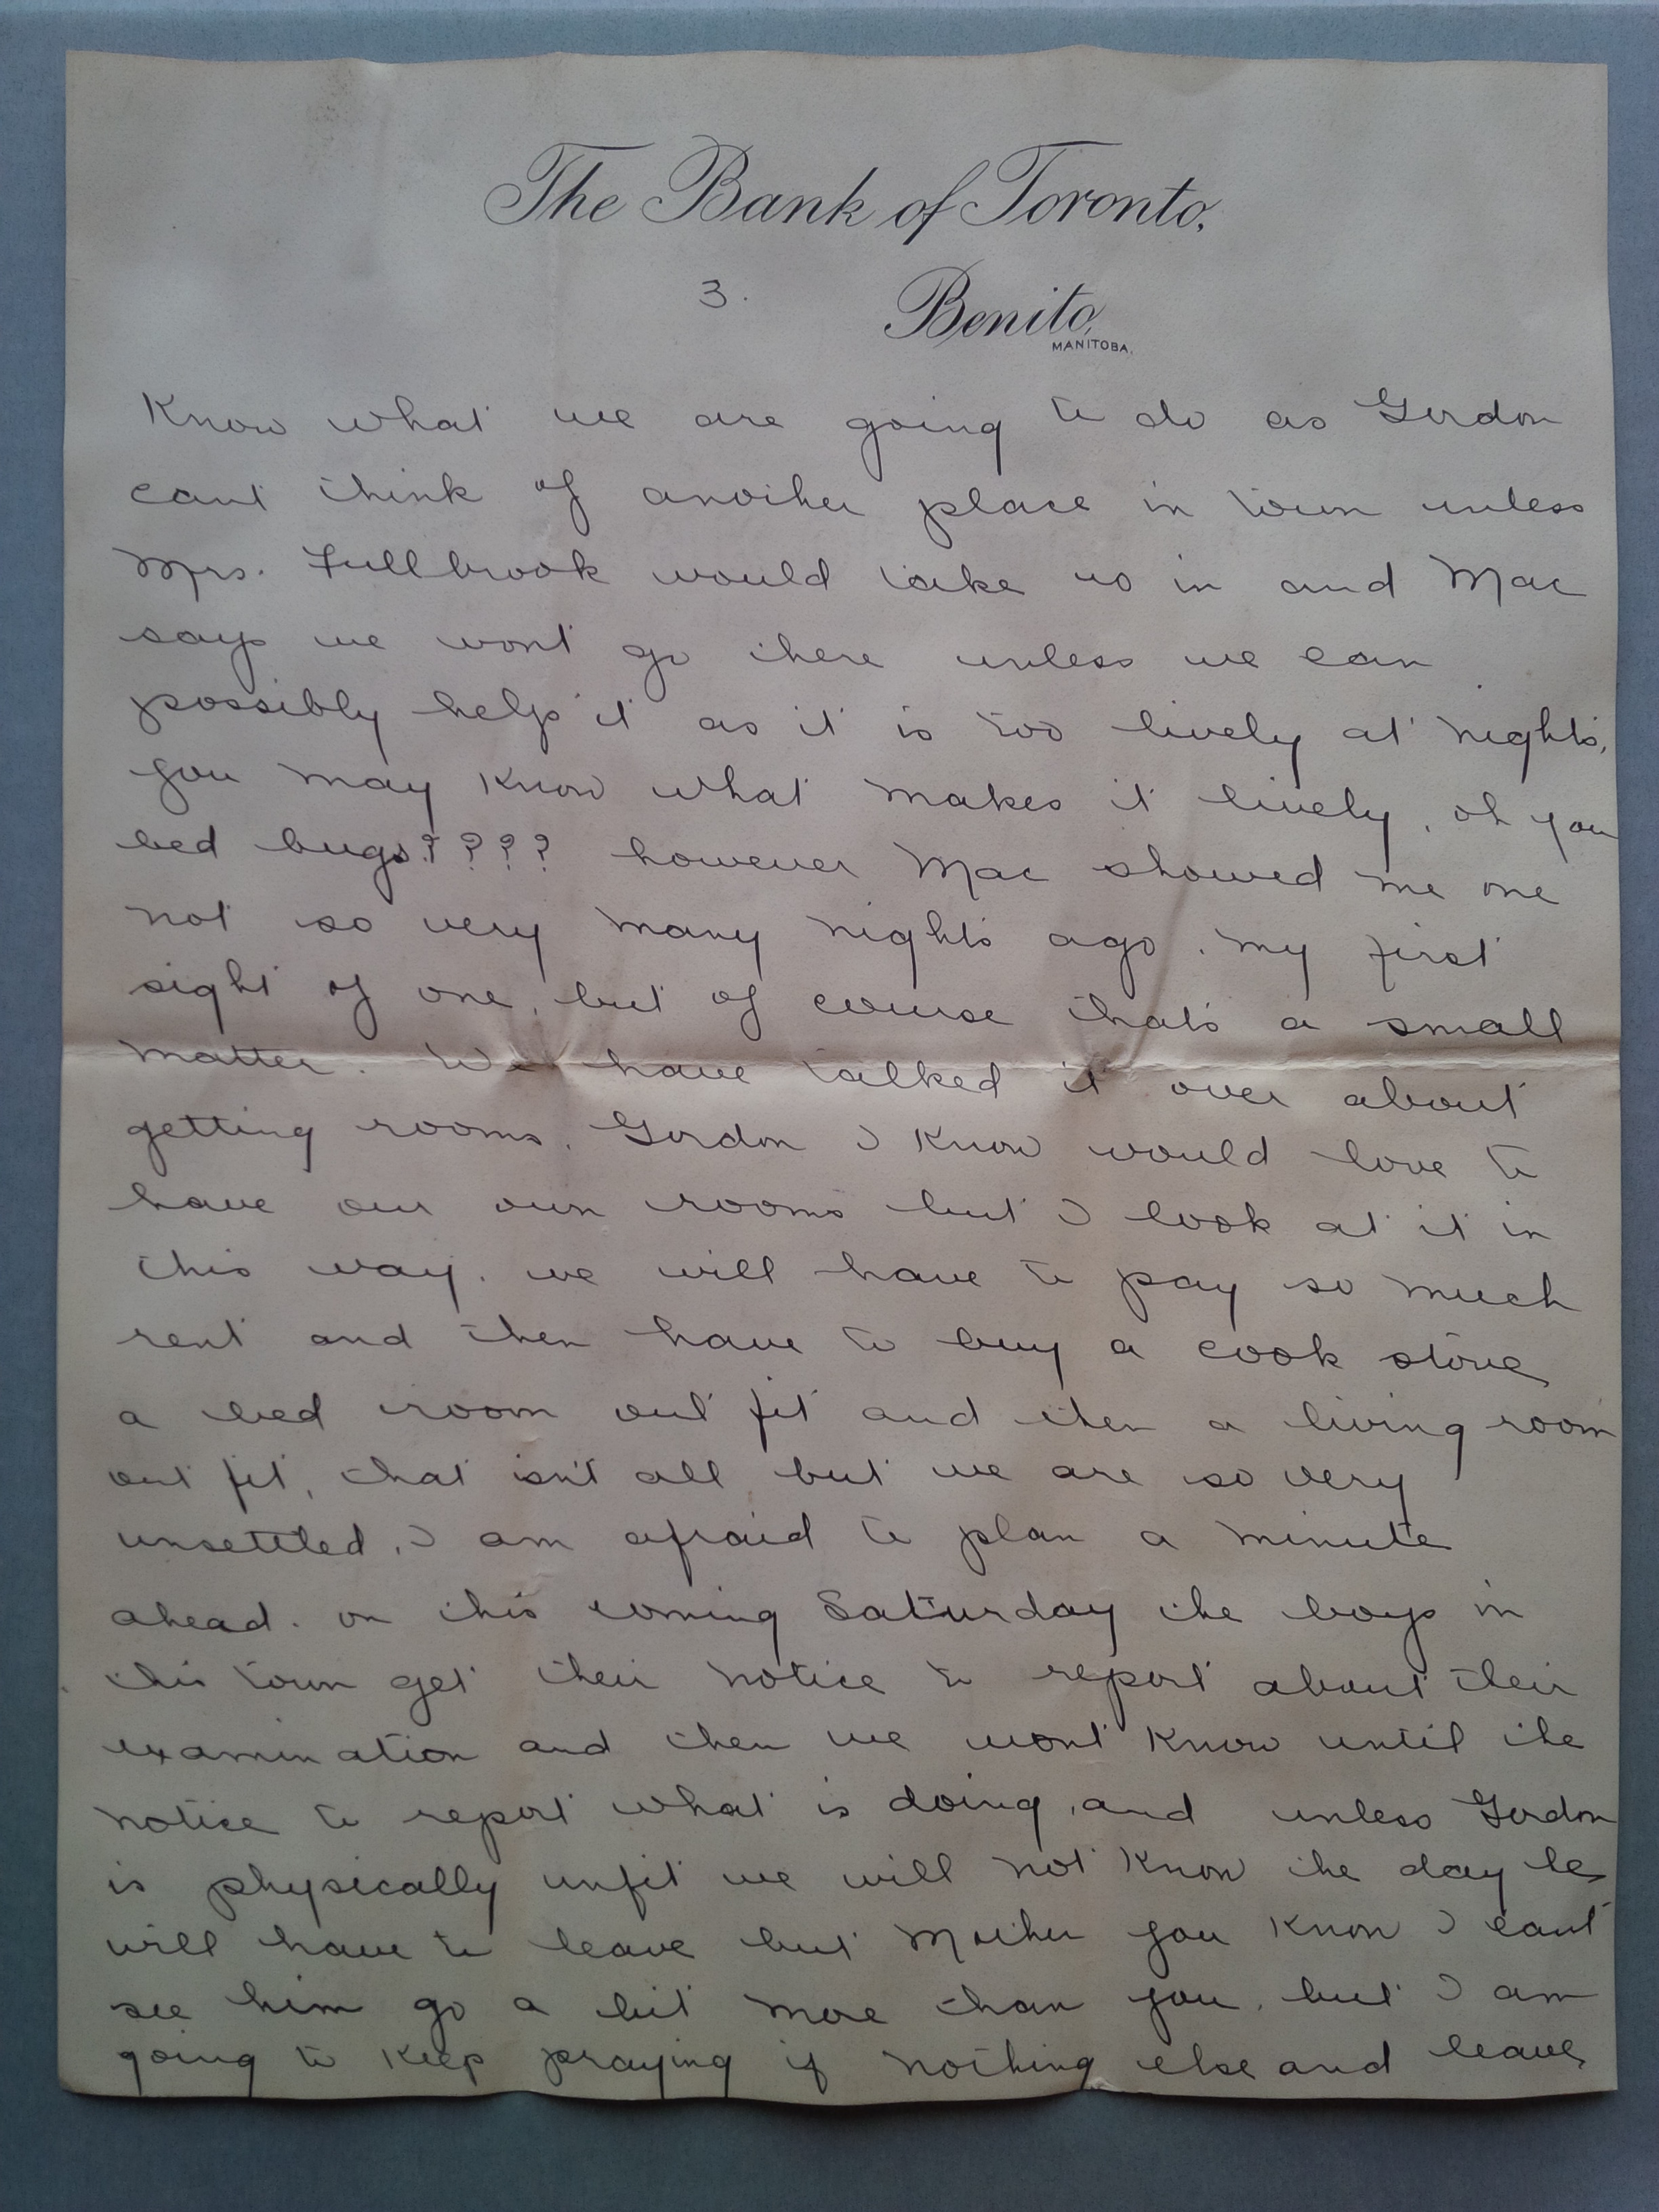 The Bank of Toronto,
3. Benito,
MANITOBA.
Know what we are going to do as Gordon
cant think of another place in town unless
Mrs. Fullbrook would take us in and Mac
says we wont go there unless we can
possibly help it as it is too lively at nights,
you may know what makes it lively, oh you
bed bugs???? however Mac showed me one
not so very many nights ago. my first
sight of one, but of course thats a small
matter. We have talked it over about
getting rooms. Gordon I know would love to
have our own rooms but I look at it in
this way. we will have to pay so much
rent and then have to buy a cook stove
a bed room out fit and then a living room
out fit, that isn't all but we are so very
unsettled, I am afraid to plan a minute
ahead. on this coming Saturday the boys in
this town get their notice to report about their
examination and then we wont know until the
notice to report what is doing, and unless Gordon
is physically unfit we will not know the day he
will have to leave but Mother you know I cant
see him go a bit more than you, but I am
going to keep praying if nothing else and leave